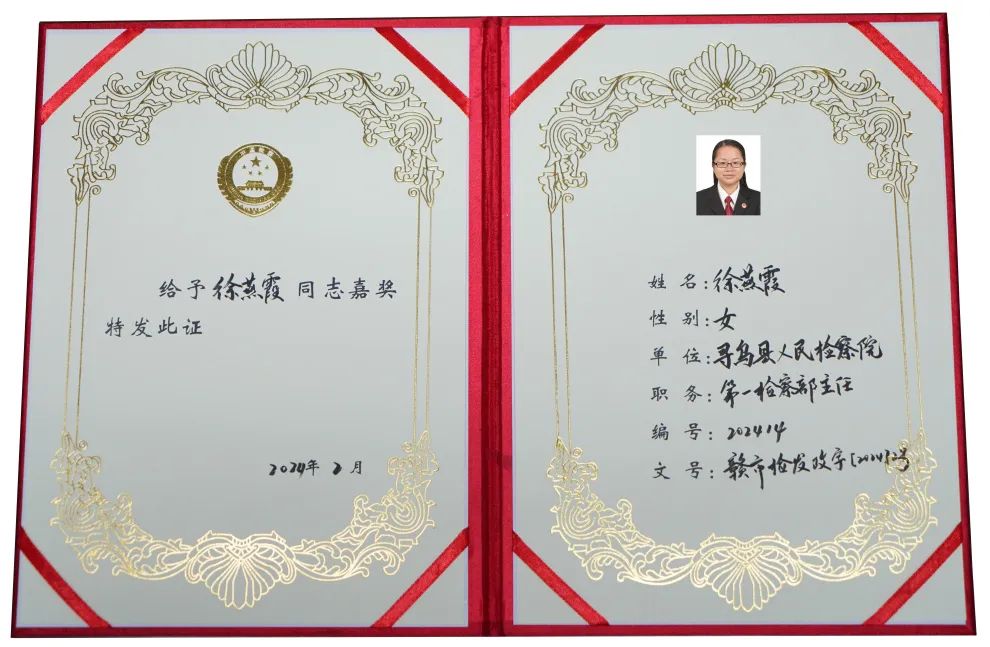 给予徐燕霞同志嘉奖
特发此证
2024年2月
姓名:徐燕霞
性别:女
单位:寻乌县人民检察院
职务:第一检察部主任
编号:202414
文号:赣市检发政字[2024]2号